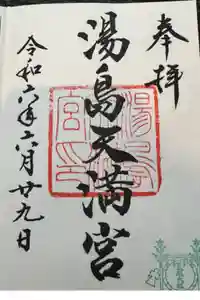 奉拝
湯島天満宮
令和六年六月廿九日
湯島天満宮印